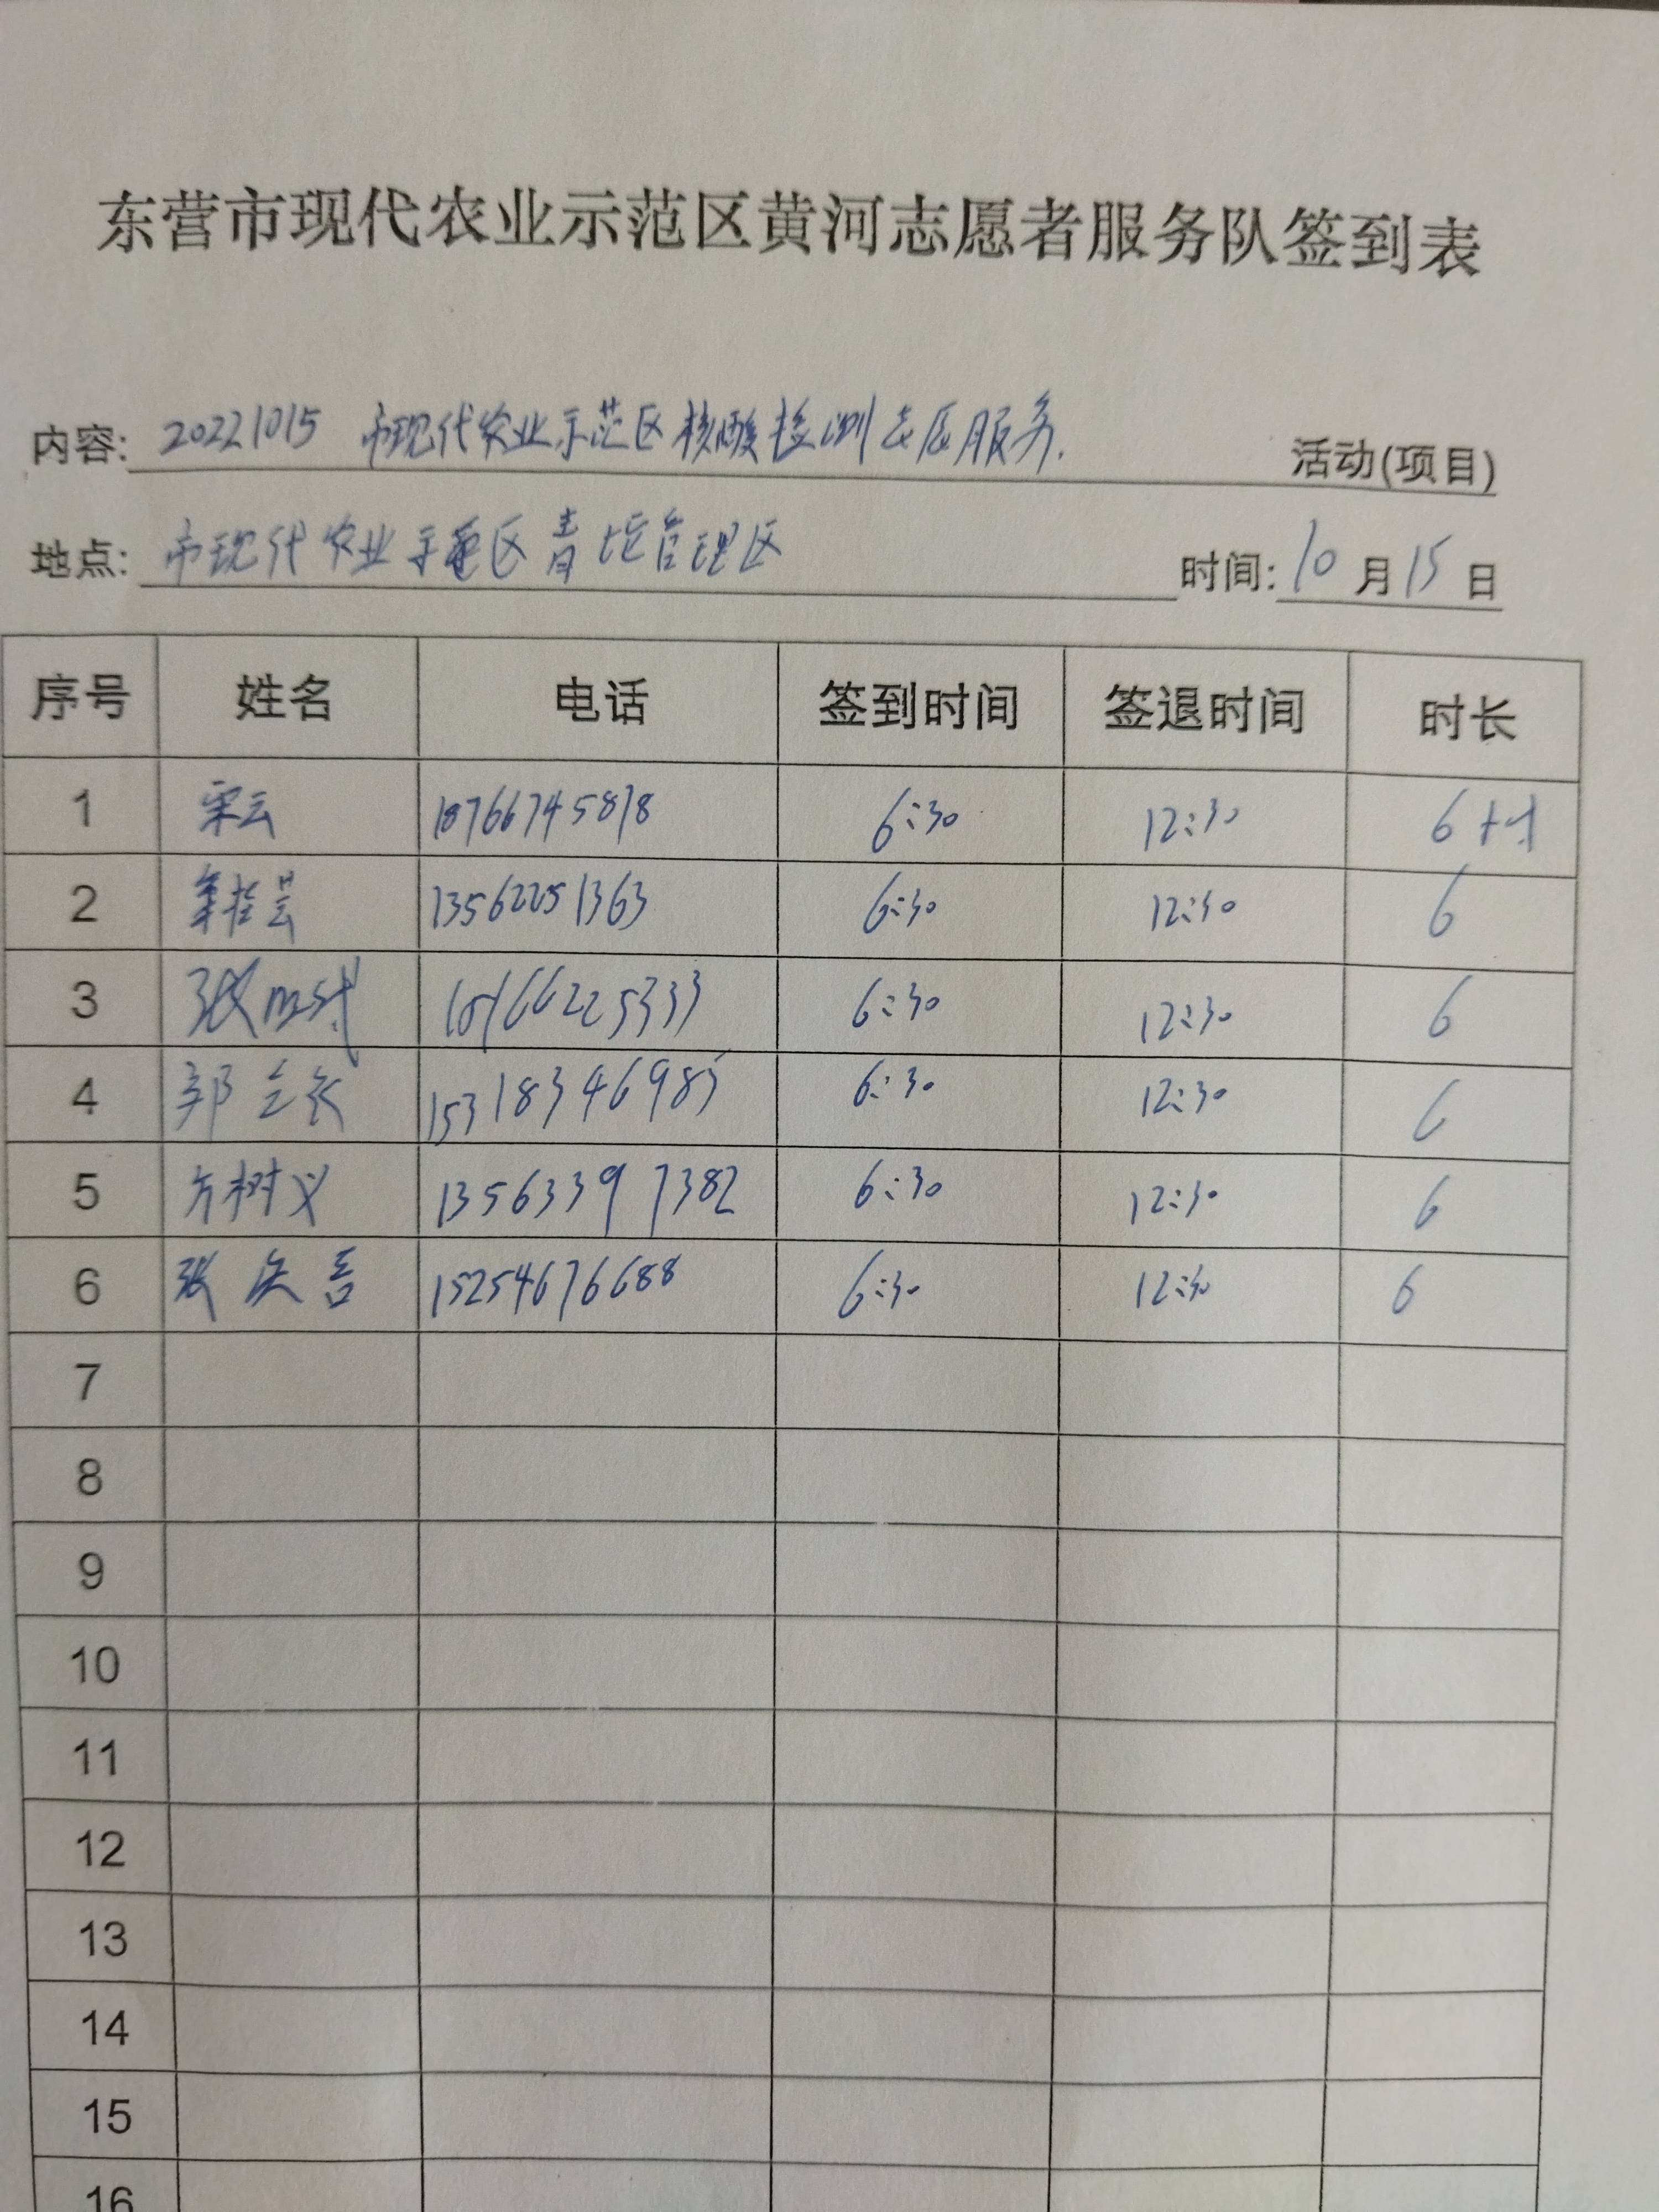 东营市现代农业示范区黄河志愿者服务队签到表
内容: 20221015 市现代农业示范区核酸检测志愿服务. 活动(项目)
地点: 市现代农业示范区青坨管理区 时间: 10 月 15 日
序号 姓名 电话 签到时间 签退时间 时长
1 宋云 18766745878 6:30 12:30 6小时
2 13562251363 6:30 12:30 6
3 张 6:30 12:30 6
4 郭 15318346985 6:30 12:30 6
5 方树义 13563397382 6:30 12:30 6
6 张 15254676688 6:30 12:30 6
7
8
9
10
11
12
13
14
15
16